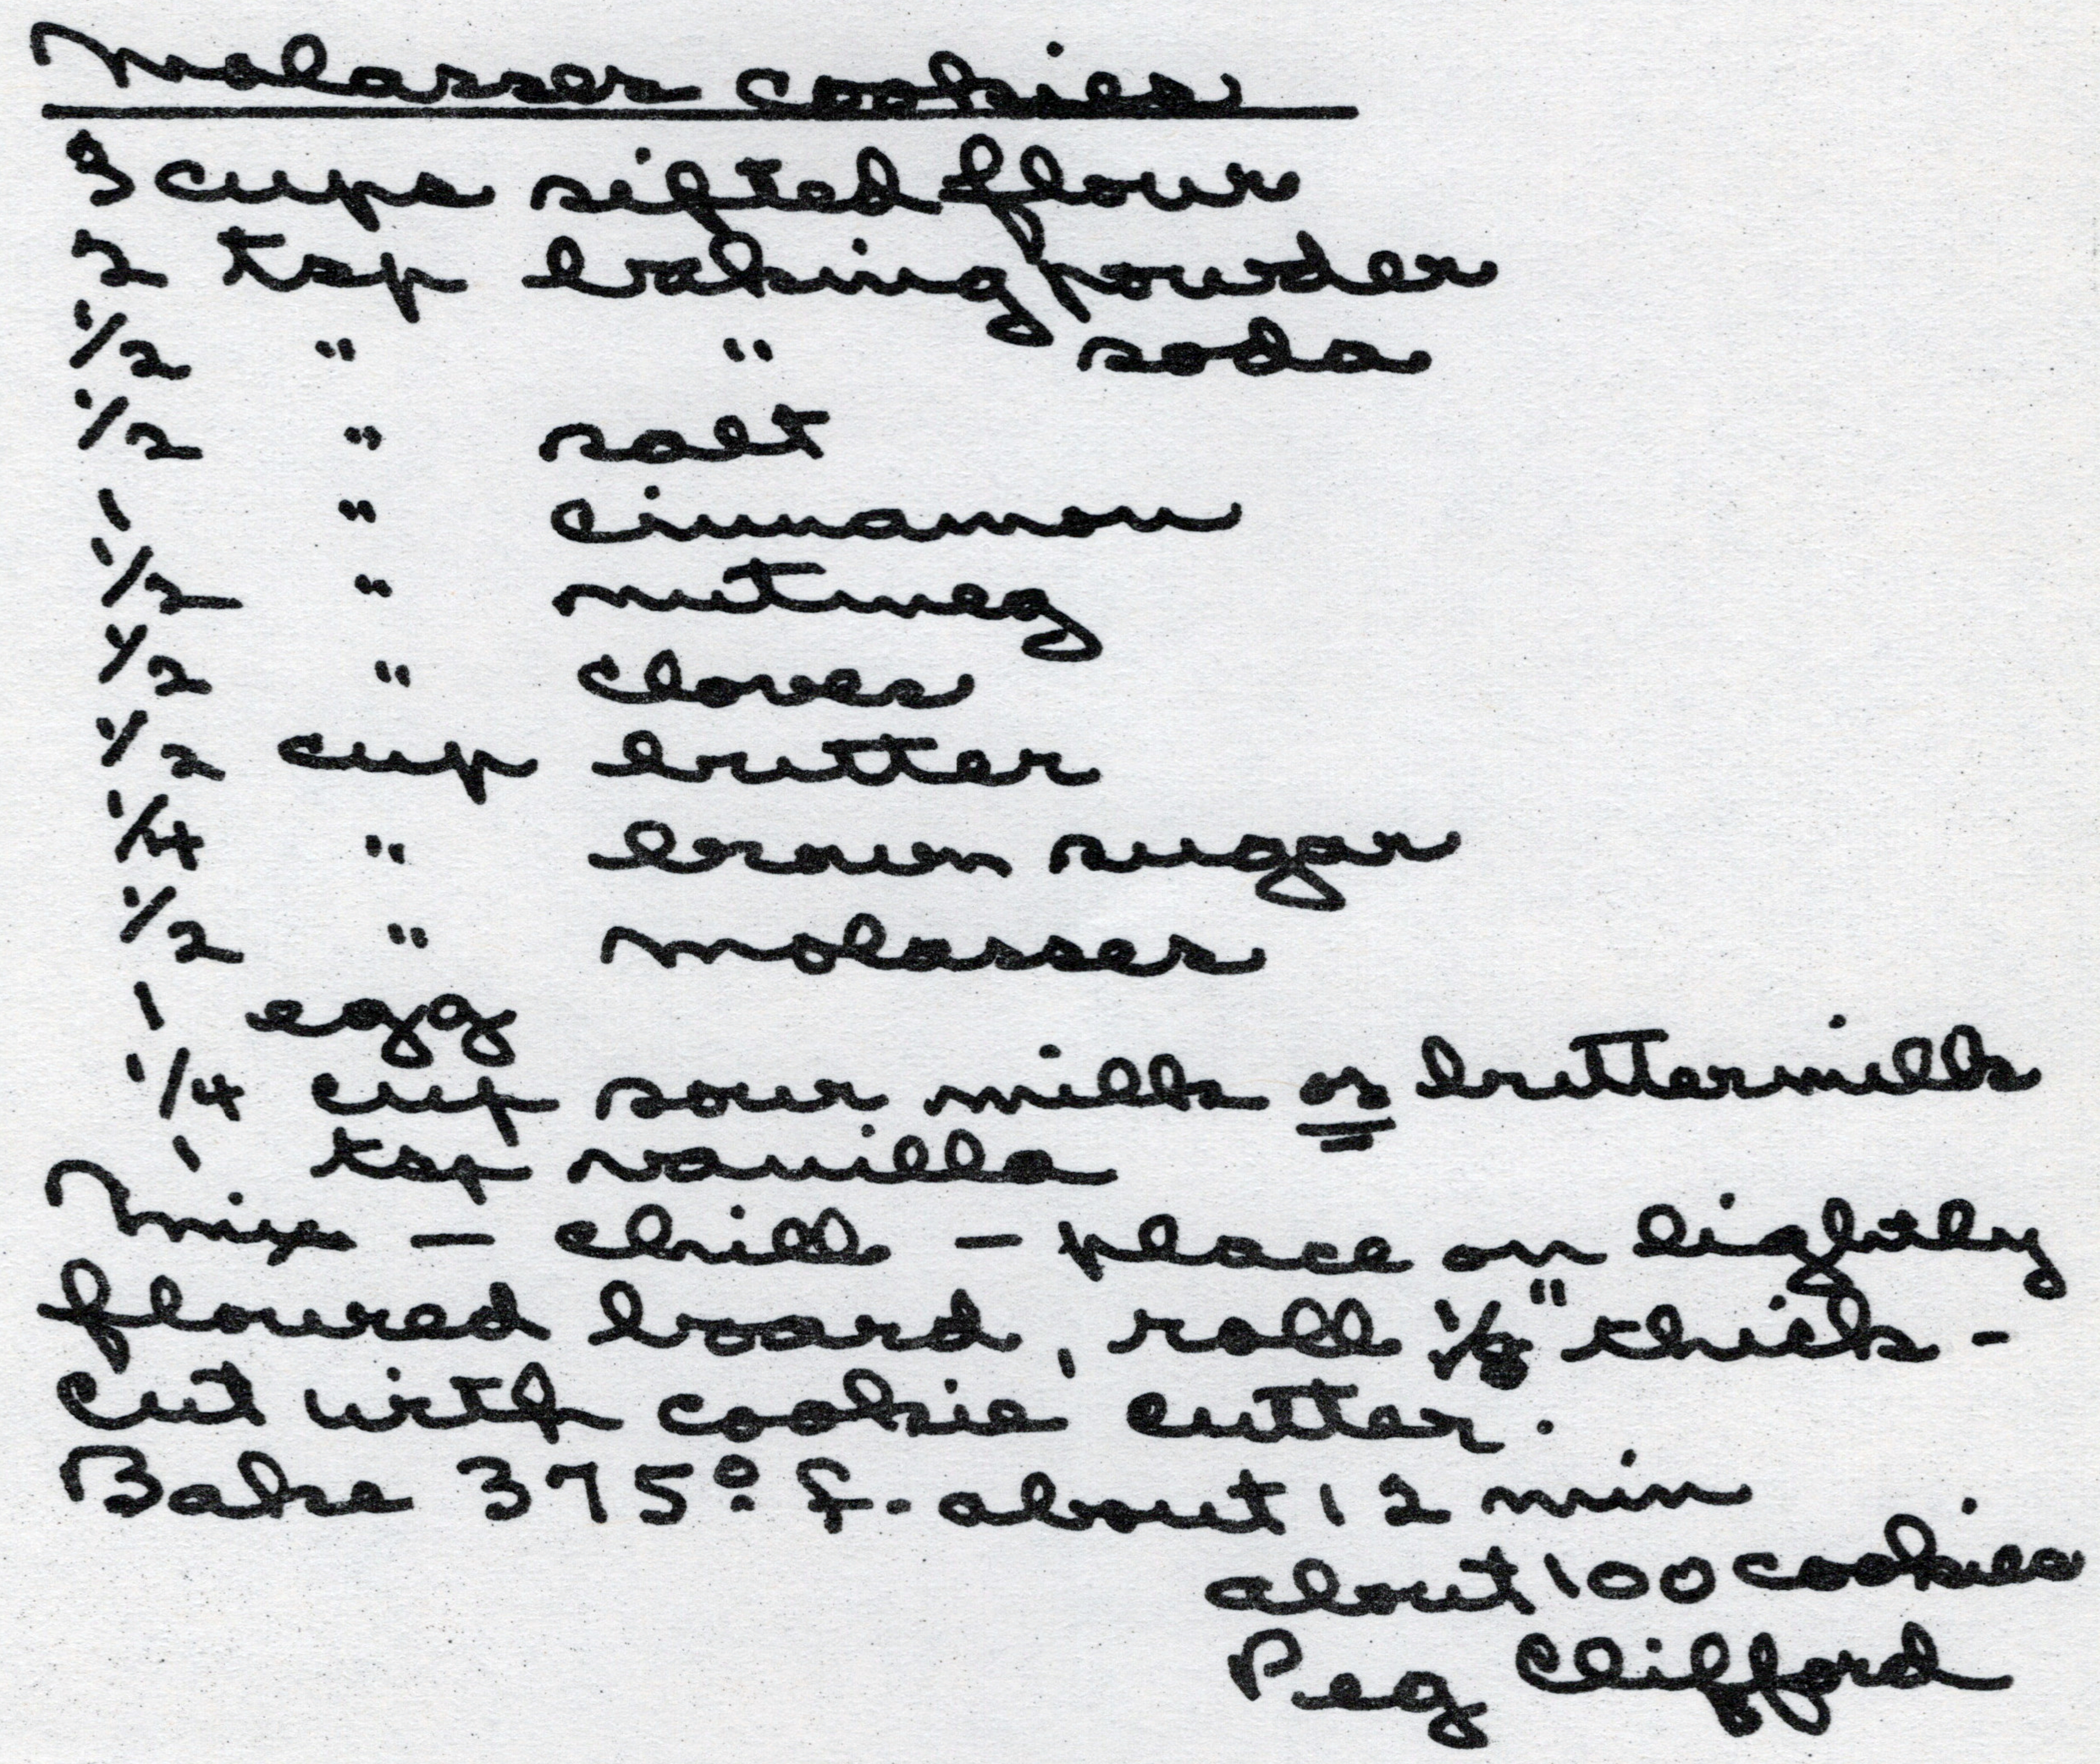 Molasses cookies
3 cups sifted flour
2 tsp baking powder
1/2 " " soda
1/2 " salt
1 " cinnamon
1/2 " nutmeg
1/2 " cloves
1/2 cup butter
1/4 " brown sugar
1/2 " molasses
1 egg
1/4 cup sour milk or buttermilk
1 tsp vanilla
Mix - chill - place on lightly
floured board, roll 1/8" thick -
cut with cookie cutter.
Bake 375° f. about 12 min
about 100 cookies
Peg Clifford